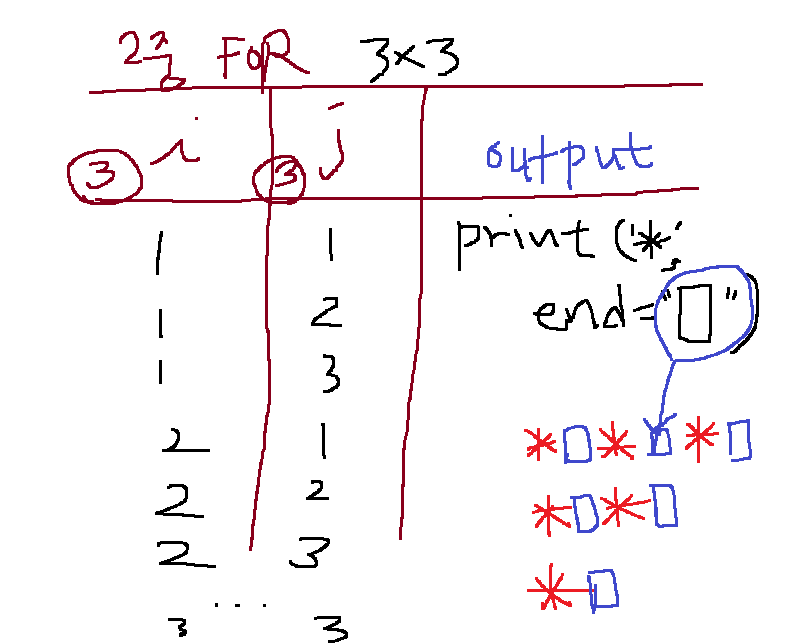 2중 FOR 3×3
③ i ③ j output
1 1 print ('*',
1 2 end="▯")
1 3
2 1 *▯*▯*▯
2 2 *▯*▯
2 3 *▯
...
3 3